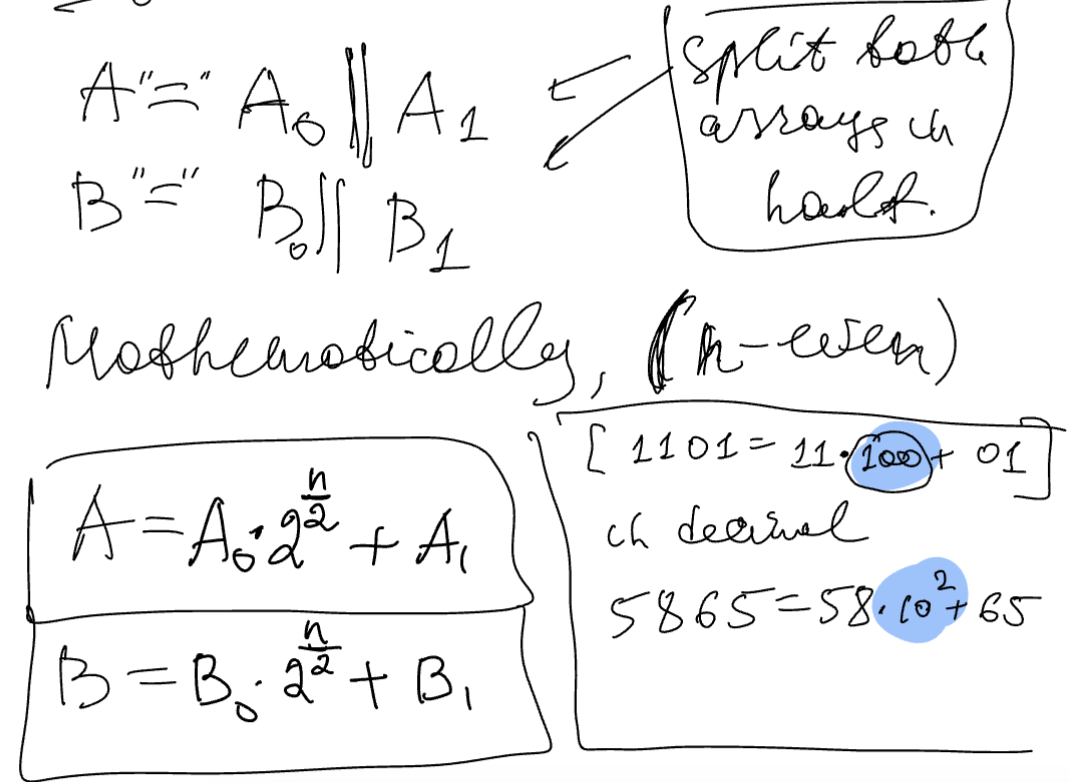 A "=" A₀ || A₁
B "=" B₀ || B₁
split both
arrays in
half.
Mathematically, (n-even)
A = A₀·2^(n/2) + A₁
B = B₀·2^(n/2) + B₁
[ 1101 = 11·100 + 01 ]
in decimal
5865 = 58·10² + 65